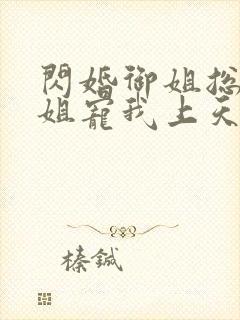 閃婚御姐總
姐寵我上天
榛鍼